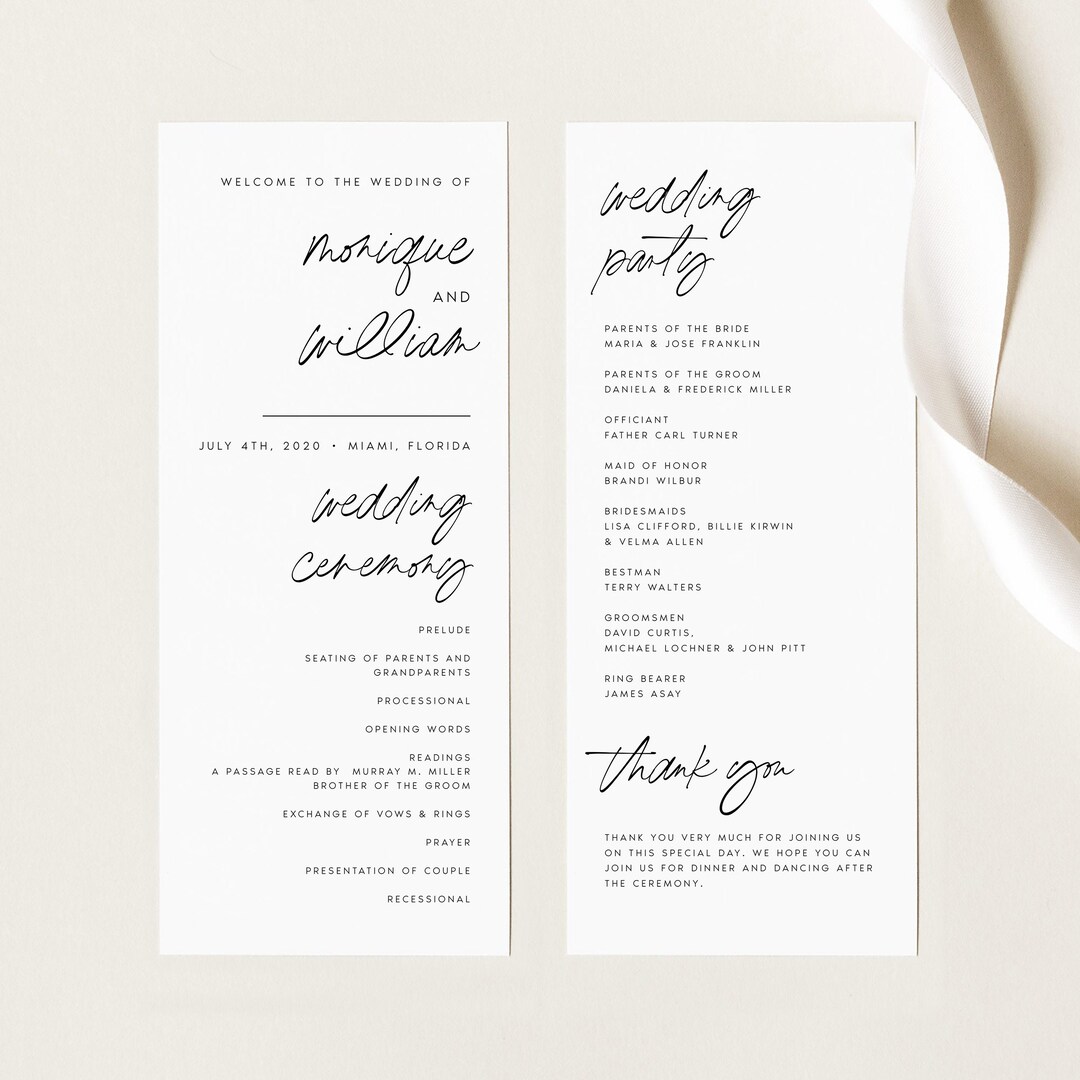 WELCOME TO THE WEDDING OF
monique
AND
william
JULY 4TH, 2020 • MIAMI, FLORIDA
wedding
ceremony
PRELUDE
SEATING OF PARENTS AND
GRANDPARENTS
PROCESSIONAL
OPENING WORDS
READINGS
A PASSAGE READ BY MURRAY M. MILLER
BROTHER OF THE GROOM
EXCHANGE OF VOWS & RINGS
PRAYER
PRESENTATION OF COUPLE
RECESSIONAL
wedding
party
PARENTS OF THE BRIDE
MARIA & JOSE FRANKLIN
PARENTS OF THE GROOM
DANIELA & FREDERICK MILLER
OFFICIANT
FATHER CARL TURNER
MAID OF HONOR
BRANDI WILBUR
BRIDESMAIDS
LISA CLIFFORD, BILLIE KIRWIN
& VELMA ALLEN
BESTMAN
TERRY WALTERS
GROOMSMEN
DAVID CURTIS,
MICHAEL LOCHNER & JOHN PITT
RING BEARER
JAMES ASAY
thank you
THANK YOU VERY MUCH FOR JOINING US
ON THIS SPECIAL DAY. WE HOPE YOU CAN
JOIN US FOR DINNER AND DANCING AFTER
THE CEREMONY.